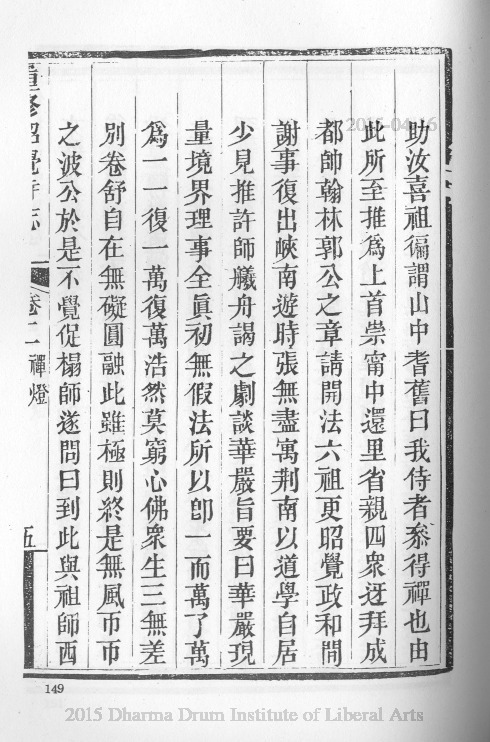 助汝喜祖徧謂山中耆舊曰我侍者叅得禪也由
此所至推爲上首崇甯中還里省親四衆迓拜成
都帥翰林郭公之章請開法六祖更昭覺政和間
謝事復出峽南遊時張無盡寓荆南以道學自居
少見推許師艤舟謁之劇談華嚴旨要曰華嚴現
量境界理事全眞初無假法所以卽一而萬了萬
爲一一復一萬復萬浩然莫窮心佛衆生三無差
別卷舒自在無礙圓融此雖極則終是無風帀帀
之波公於是不覺促榻師遂問曰到此與祖師西
重修昭覺寺志
卷二 禪燈
五
149
2015 Dharma Drum Institute of Liberal Arts